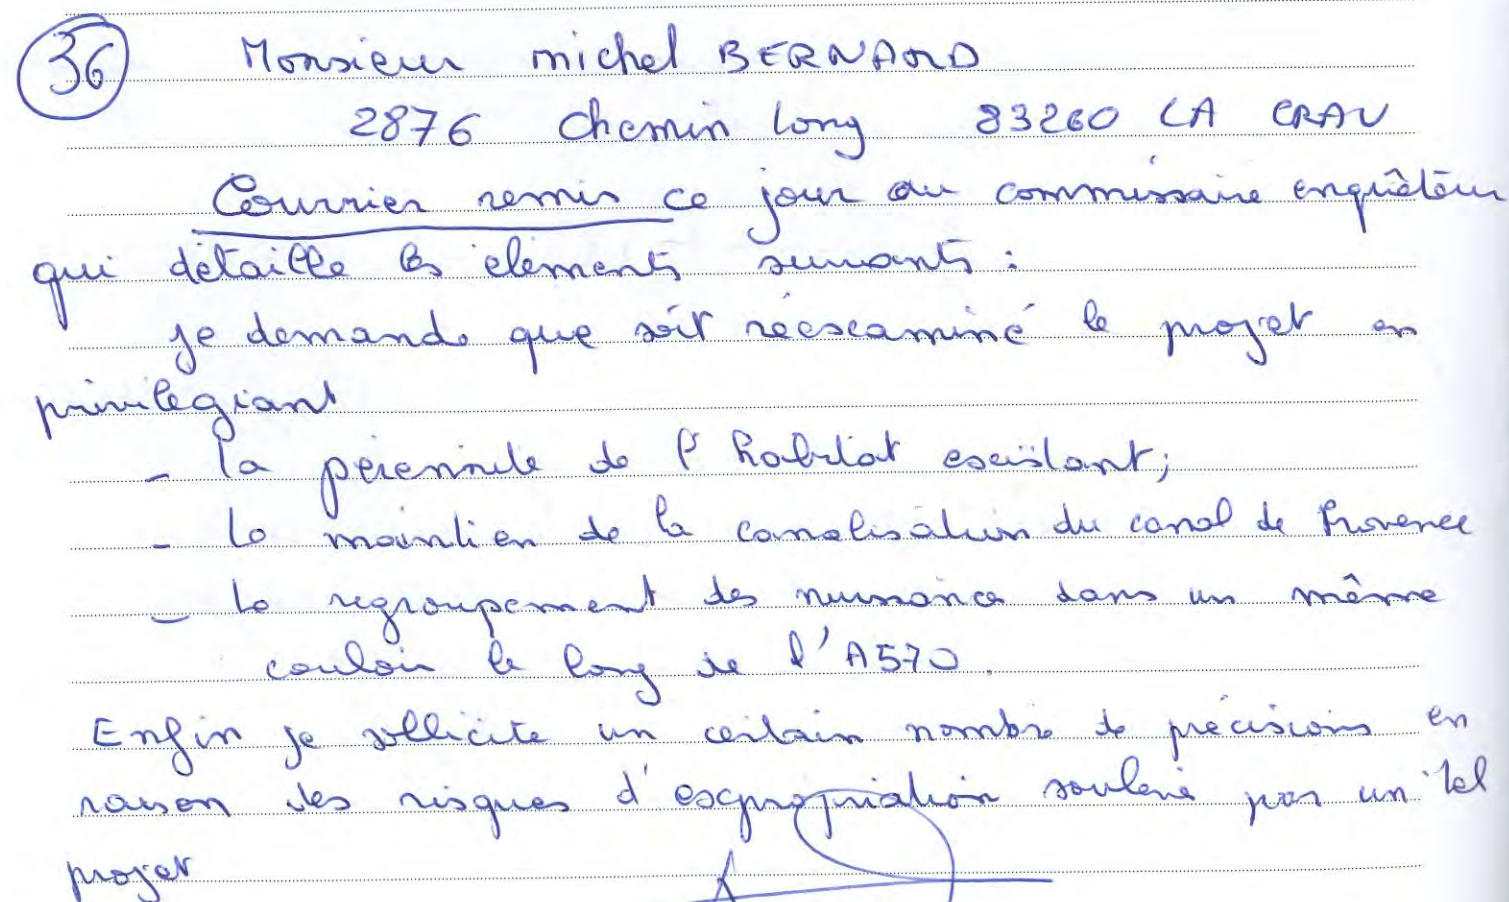 36 Monsieur michel BERNARD
2876 Chemin Long 83260 LA CRAU
Courrier remis ce jour au commissaire enquêteur
qui détaille les éléments suivants :
je demande que soit réexaminé le projet en
privilégiant
- la pérennité de l'habitat existant;
- le maintien de la canalisation du canal de Provence
- le regroupement des nuisances dans un même
couloir le long de l'A570.
Enfin je sollicite un certain nombre de précisions en
raison des risques d'expropriation soulevé par un tel
projet